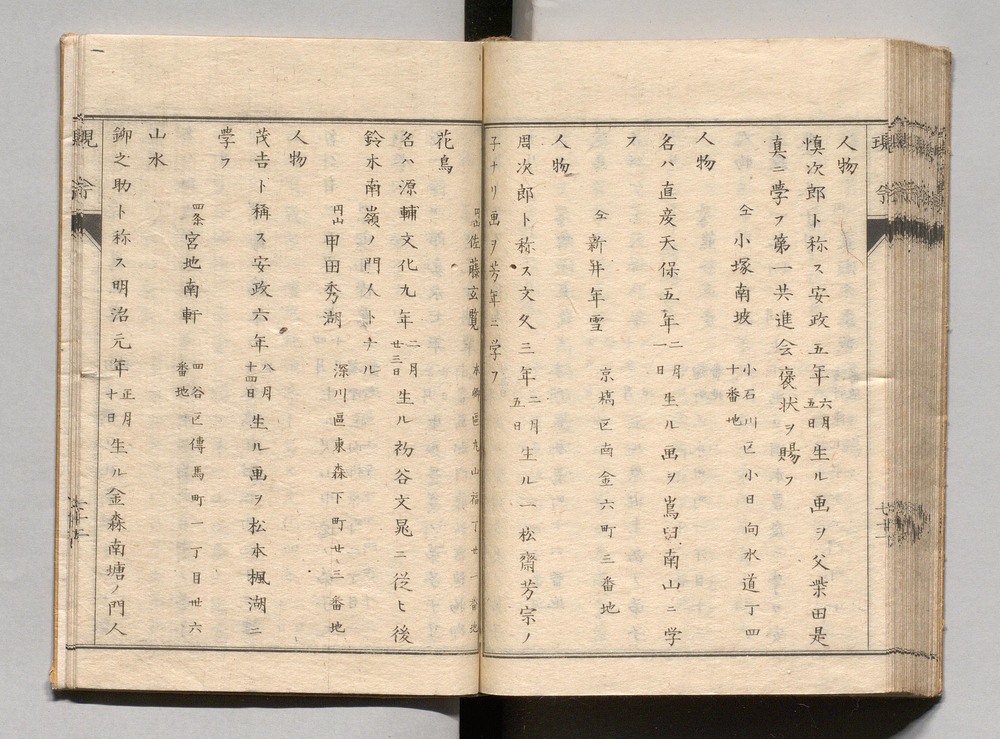 人物
慎次郎ト称ス安政五年六月五日生ル画ヲ父柴田是
真ニ学フ第一共進会褒状ヲ賜フ
仝 小塚南坡 小石川区小日向水道丁四十番地
人物
名ハ直度天保五年二月一日生ル画ヲ嶌田南山ニ学
フ
仝 新井年雪 京橋区南金六町三番地
人物
周次郎ト称ス文久三年二月五日生ル一松齋芳宗ノ
子ナリ画ヲ芳年ニ学フ
円山 佐藤玄覧 本郷区丸山福丁廿一番地
花鳥
名ハ源輔文化九年二月廿三日生ル初谷文晁ニ従ヒ後
鈴木南嶺ノ門人トナル
円山 甲田秀湖 深川區東森下町廿三番地
人物
茂吉ト稱ス安政六年八月十四日生ル画ヲ松本楓湖ニ
學フ
四条 宮地南軒 四谷区傳馬町一丁目廿六番地
山水
鉚之助ト称ス明治元年正月十日生ル金森南塘ノ門人